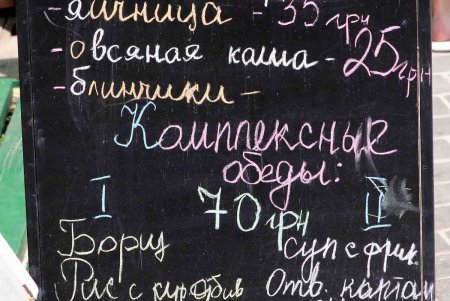 -яичница - 35 грн
-овсяная каша - 25 грн
-блинчики -
Комплексные
обеды:
I 70 грн II
Борщ Суп с фрик.
Рис с кур. Отв. картоп